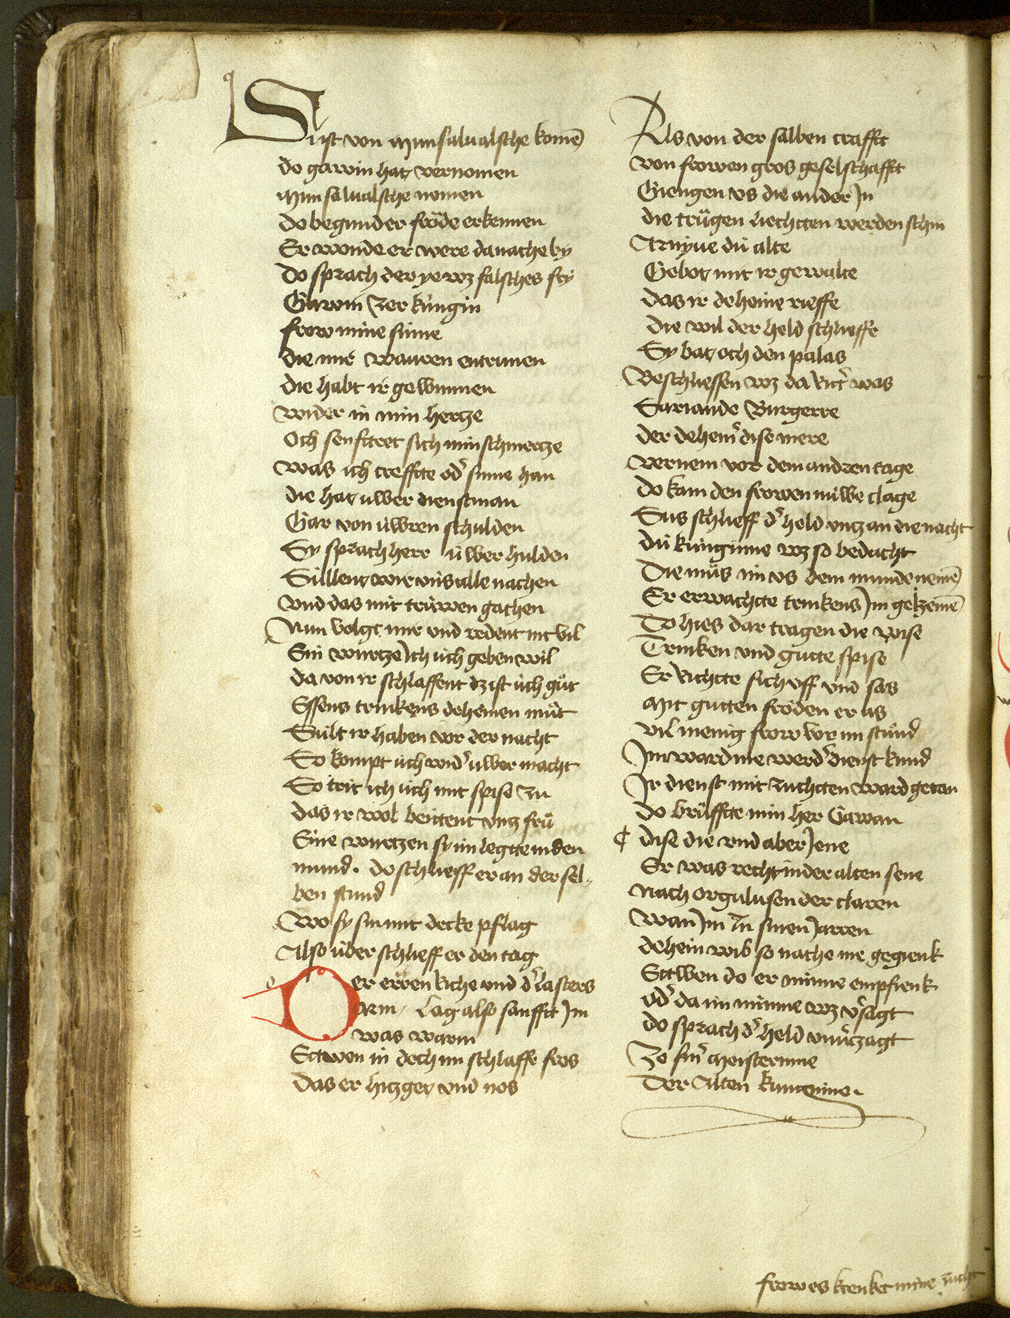 Si ist von munsalualsche komē
do gawin hat vernomen
munsalualsche nemen
do begunder fröde erkennen
Er wonde er were danache by
Do sprach der ye wz falsches fry
Gawin Zer küngin
frow mine sinne
die mir wauren entrunen
die habt ir gewunnen
wider in min hertze
Och senfftet sich min schmertze
was ich crefftte od͛ sinne han
die hat uwer dienstman
Gar von uwren schulden
Sy sprach herr uwer hulden
Süllent wir uns alle nachen
vnd das mit trüwen gachen
Nun volgt mir vnd redent nit vil
Ein wurtze Ich üch geben wil
da von ir schlaffent dz ist üch güt
Essens trinkens deheinen müt
Sült ir haben vor der nacht
So kompt üch wid͛ uwer macht
So trit ich üch mit spise zu
das ir wol beittent vntz frü
Eine wurtzen sy im legtte in den
mund. do schlieff er an der sel-
ben stund
Wo sy sin mit decke pflag
Also über schlieff er den tag
Der eren riche vnd d͛ lasters
arm Lag also sanfft Im
was warm
Ettwen in doch im schlaffe fros
Das er hitzget vnd nos
Als von der salben crafft
von frowen gros geselschafft
Giengen vs die ander In
die trügen liechtten werden schin
Arnyue dü alte
Gebot mit ir gewalte
das ir deheine rieffe
die wil der held schlieffe
Sy bat och den palas
Beschliessen wz da rit͛ was
Sariande Burgerre
der dehein͛ dise mere
vernem vor dem andren tage
do kam den frowen nüwe clage
Sus schlieff d͛ held vntz an die nacht
dü künginne wz so bedacht
Die wurtz im vs dem munde nemē
Er erwachtte trinkens In gezemē
Do hies dar tragen die wise
Trinken vnd gutte spise
Er richtte sich vff vnd sas
Mit gutten fröden er as
vil menig frow vor im stünd
Im ward nie werd͛ dienst kund
Ir dienst mit zuchtten ward getan
do brüffte min her Gawan
¢ dise die vnd aber Jene
Er was recht in der alten sene
Nach orgulusen der claren
wan Im In sinen Jarren
dehein wib so nache nie gegienk
Ettwen do er minne empfienk
od͛ da im minne wz v͛sagt
do sprach d͛ held vnu͛zagt
Zo sin͛ meisterinne
Der Alten künginne.
frow es krenket mine zucht